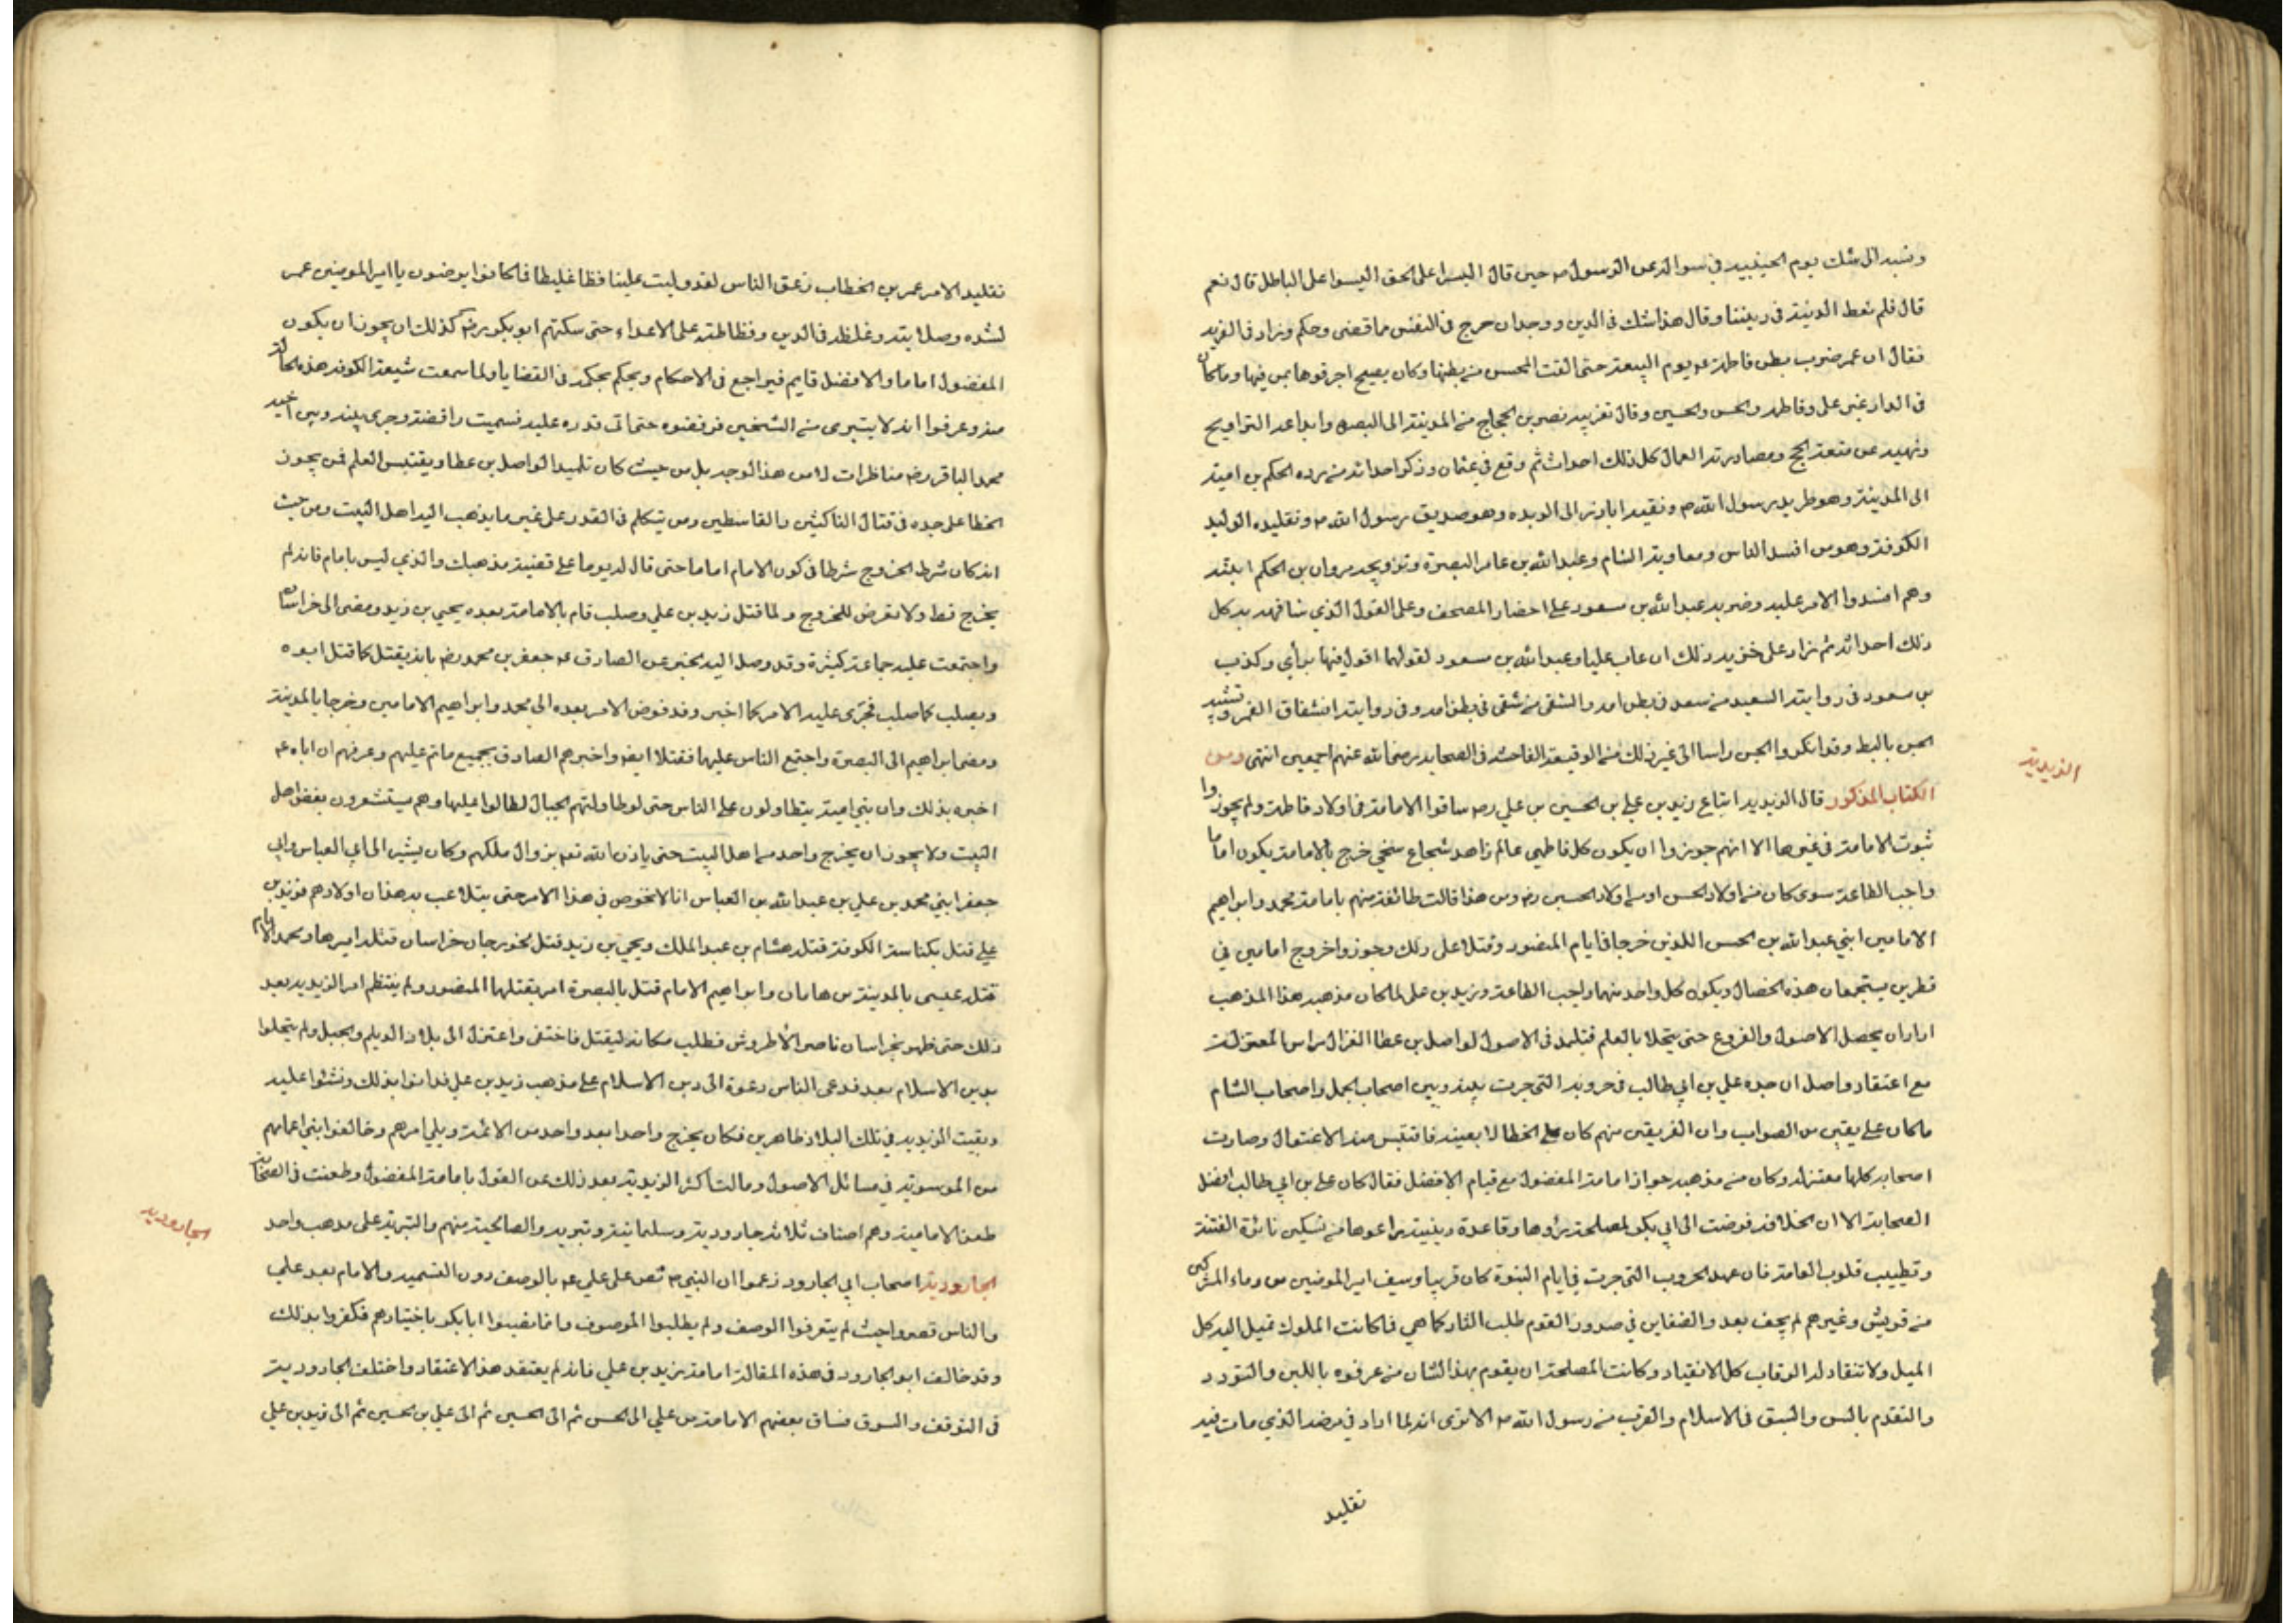 ونسبه الى شك يوم الحديبية في سواله عن الرسول ص حين قال السنا على الحق اليسوا على الباطل قال نعم
قال فلم نعط الدنية في ديننا وقال هذا شك في الدين ووجدان حرج في النفس مما قضى وحكم وزاد في الفرية
فقال ان عمر ضرب بطن فاطمة عم يوم البيعة حتى القت المحسن من بطنها وكان يصيح احرقوها بمن فيها وما كان
في الدار غير على وفاطمه والحسن والحسين وقال تغريبه نصر بن الحجاج من المدينة الى البصره وابداعه التراويح
ونهيه عن متعة الحج ومصادرته العمال كل ذلك احداث ثم وقع في عثمان وذكر احداثه من رده الحكم بن امية
الى المدينة وهو طريد رسول الله ص ونفيه اباذر الى الربده وهو صديق رسول الله ص وتقليده الوليد
الكوفة وهو من افسد الناس ومعاوية الشام وعبد الله بن عامر البصرة وتزويجه مروان بن الحكم ابنته
وهم افسدوا الامر عليه وضربه عبد الله بن مسعود على احضار المصحف وعلى القول الذي شافهه به كل
ذلك احداثه ثم زاد على خزيه ذلك ان عاب عليا وعبد الله بن مسعود لقولهما اقول فيها برأي وكذب
بن مسعود في روايته السعيد من سعد في بطن امه والشقى من شقى في بطن امه وفي روايته انشقاق القمر وتشبيه
الجن بالبط وقد انكر الجن راسا الى غير ذلك من الوقيعة الفاحشه في الصحابه رضى الله عنهم اجمعين انتهى ومن
الزيدية
الكتاب المذكور قال الزيديه اتباع زيد بن على بن الحسين بن علي رض ساقوا الامامة في اولاد فاطمة ولم يجوزوا
ثبوت الامامة في غيرها الا انهم جوزوا ان يكون كل فاطمي عالم زاهد شجاع سخي خرج بالامامة يكون اماما
واجب الطاعة سوى كان من اولاد الحسن او من اولاد الحسين رض ومن هذا قالت طائفة منهم بامامة محمد وابراهيم
الامامين ابني عبد الله بن الحسن اللذين خرجا في ايام المنصور وقتلا على ذلك وجوزوا خروج امامين في
قطرين يستجمعان هذه الخصال ويكون كل واحد منهما واجب الطاعة وزيد بن على لما كان مذهبه هذا المذهب
اراد ان يحصل الاصول والفروع حتى يتحلا بالعلم فتلمذ في الاصول لواصل بن عطا الغزال راس المعتزلة
مع اعتقاد واصل ان جده علي بن ابي طالب في حروبه التى جرت بينه وبين اصحاب الجمل واصحاب الشام
ما كان على يقين من الصواب وان الفريقين منهم كان على الخطا لا بعينه فاقتبس منه الاعتزال وصارت
اصحابه كلها معتزله وكان من مذهبه جواز امامة المفضول مع قيام الافضل فقال كان على بن ابي طالب افضل
الصحابة الا ان الخلافه فوضت الى ابي بكر لمصلحة رؤها وقاعدة دينية راعوها من تسكين نائرة الفتنة
وتطييب قلوب العامة فان عهد الحروب التى جرت في ايام النبوة كان قريبا وسيف امير المومنين من دماء المشركين
من قريش وغيرهم لم يجف بعد والضغاين في صدور القوم طلب الثار كما هي فما كانت الملوك تميل اليه كل
الميل ولا تنقاد له الرقاب كل الانقياد وكانت المصلحة ان يقوم بهذا الشان من عرفوه باللين والتودد
والتقدم بالسن والسبق في الاسلام والقرب من رسول الله ص الا ترى انه لما اراد في مرضه الذي مات فيه
تقليد
تقليد الامر عمر بن الخطاب زعق الناس لقد وليت علينا فظا غليظا فما كانوا يرضون يا امير المومنين عمر
لشده وصلابته وغلظه في الدين وفظاظته على الاعداء حتى سكنهم ابو بكر رض كذلك ان يجوز ان يكون
المفضول اماما والافضل قايم فيراجع في الاحكام ويحكم بحكمه في القضايا ولما سمعت شيعة الكوفه هذه المقالة
منه وعرفوا انه لا يتبرى من الشيخين فرفضوه حتى اتى قدره عليه فسميت رافضة وجرى بينه وبين اخيه
محمد الباقر رض مناظرات لا من هذا الوجه بل من حيث كان تلميذا لواصل بن عطا ويقتبس العلم ممن يجوز
الخطا على جده في قتال الناكثين والقاسطين ومن يتكلم في القدر على غير ما يذهب اليه اهل البيت ومن حيث
انه كان شرط الخروج شرطا في كون الامام اماما حتى قال له يوما على قضية مذهبك والدي ليس بامام فانه لم
يخرج قط ولا تعرض للخروج ولما قتل زيد بن علي وصلب قام بالامامة بعده يحيى بن زيد ومضى الى خراسان
واجتمعت عليه جماعة كثيرة وقد وصل اليه الخبر عن الصادق عم جعفر بن محمد رض بانه يقتل كما قتل ابوه
ويصلب كما صلب فجرى عليه الامر كما اخبر وقد فوض الامر بعده الى محمد وابراهيم الامامين وخرجا بالمدينة
ومضى ابراهيم الى البصرة واجتمع الناس عليها فقتلا ايضا واخبرهم الصادق بجميع ما تم عليهم وعرفهم ان اباه عم
اخبره بذلك وان بني امية يتطاولون على الناس حتى لو طاولتهم الجبال لطالوا عليها وهم يستشعرون بغض اهل
البيت ولا يجوز ان يخرج واحد من اهل البيت حتى ياذن الله تعم بزوال ملكهم وكان يشير الى ابي العباس وابي
جعفر ابني محمد بن علي بن عبد الله بن العباس انا لا نخوض في هذا الامر حتى يتلاعب به هذان اولادهم فزيد بن
علي قتل بكناسة الكوفة قتله هشام بن عبد الملك ويحيى بن زيد قتل بجوزجان خراسان قتله اميرها ومحمد الامام
قتله عيسى بالمدينة بن هامان وابراهيم الامام قتل بالبصرة امر بقتلهما المنصور ولم ينتظم امر الزيديه بعد
ذلك حتى ظهر بخراسان ناصر الاطروش فطلب مكانه ليقتل فاختفى واعتزل الى بلاد الديلم والجبل ولم يتحلوا
بدين الاسلام بعد فدعى الناس دعوة الى دين الاسلام على مذهب زيد بن علي فدانوا بذلك ونشئوا عليه
وبقيت الزيديه في تلك البلاد ظاهرين فكان يخرج واحدا بعد واحد من الائمة ويلي امرهم وخالفوا بني اعمامهم
من الموسوية في مسائل الاصول ومالت اكثر الزيدية بعد ذلك عن القول بامامة المفضول وطعنت في الصحابة
طعن الامامية وهم اصناف ثلاثه جاروديه وسليمانية وتبريه والصالحية منهم والتبرية على مذهب واحد
الجاروديه
الجارودية اصحاب ابي الجارود زعموا ان النبي ص نص على علي عم بالوصف دون التسميه والامام بعد علي
والناس قصروا حيث لم يتعرفوا الوصف ولم يطلبوا الموصوف وانما نصبوا ابابكر باختيارهم فكفروا بذلك
وقد خالف ابو الجارود في هذه المقالة امامة زيد بن علي فانه لم يعتقد هذا الاعتقاد واختلف الجارودية
في التوقف والسوق فساق بعضهم الامامة من علي الى الحسن ثم الى الحسين ثم الى علي بن الحسين ثم الى زيد بن علي